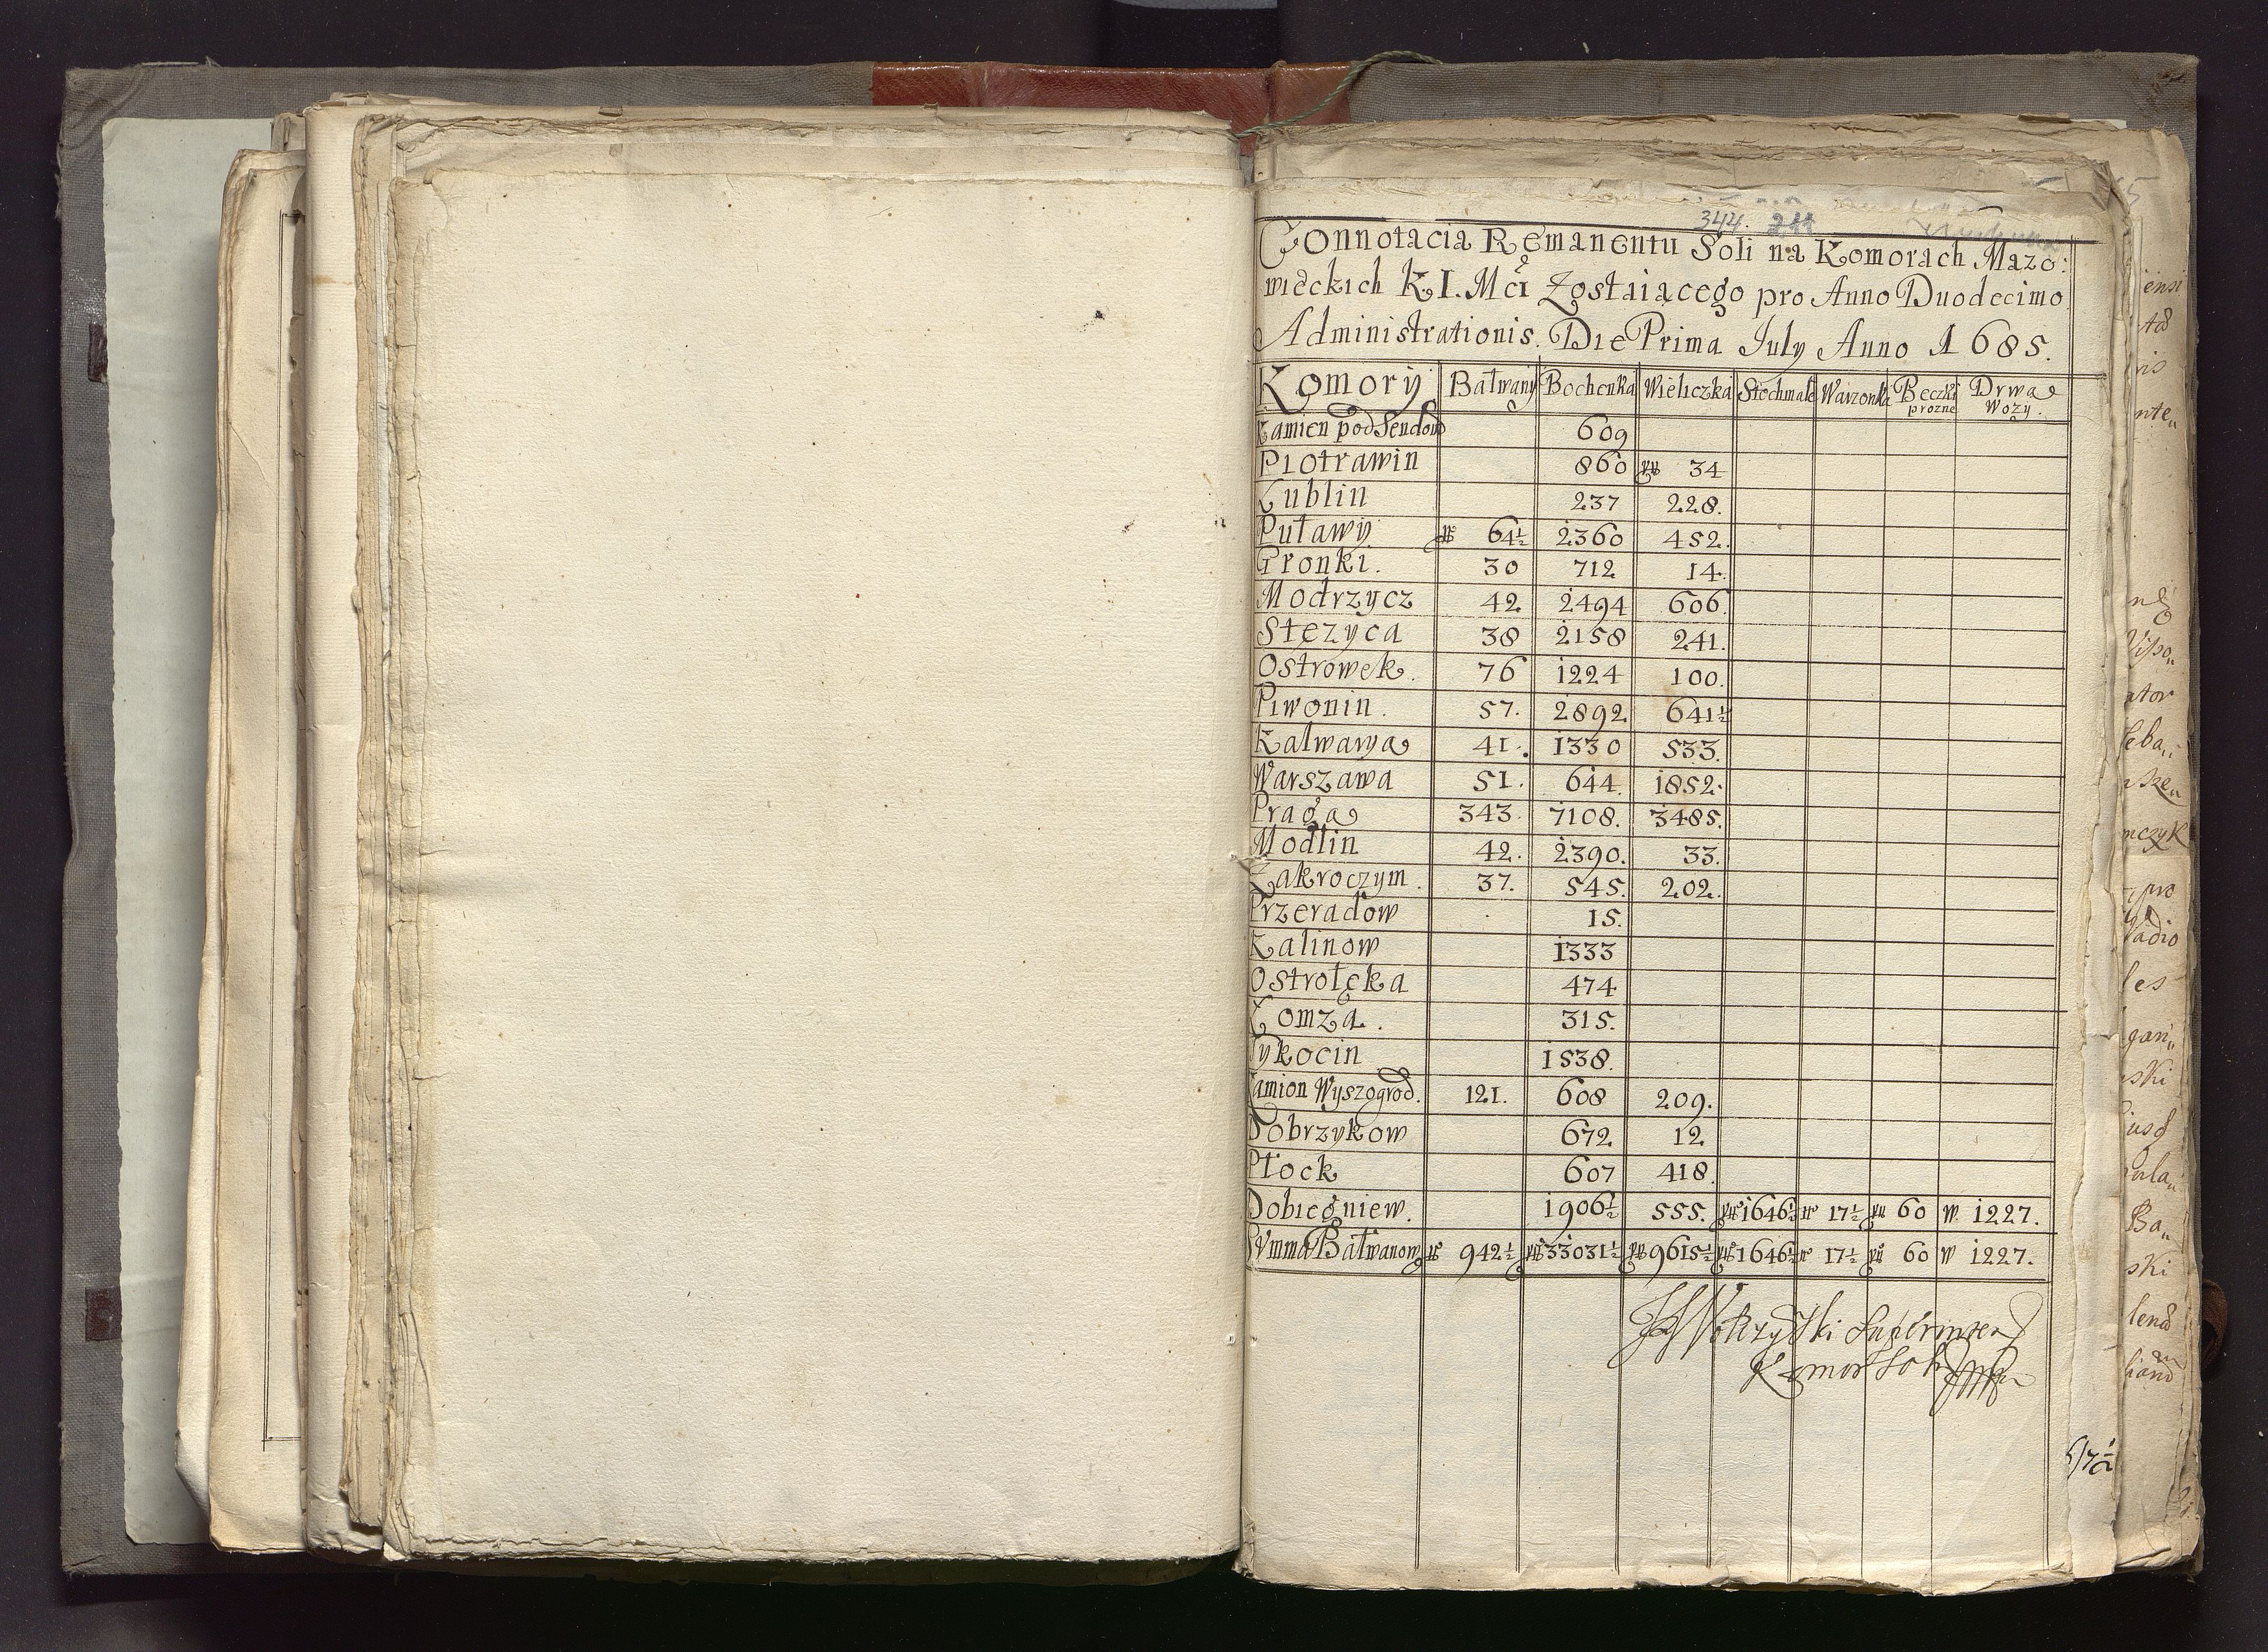 344. 244
Connotacia Remanentu Soli na Komorach Mazo:
wieckich K I. Mci Zostaiącego pro Anno Duodecimo
Administrationis. Die Prima July Anno 1685.
Komory Bałwany Bochenka Wieliczka Stochmale Warzonka Beczki prozne Drwa Wozy.
Kamien pod Sendom 609
Piotrawin 860 34
Lublin 237 228.
Puławy 64½ 2360 452.
Gronki. 30 712 14.
Modrzycz 42 2494 606.
Stezyca 38 2158 241.
Ostrowek. 76 1224 100.
Piwonin. 57. 2892 641½
Kalwarya 41. 1330 533.
Warszawa 51. 644. 1852.
Praga 343. 7108. 3485.
Modlin 42. 2390. 33.
Zakroczym. 37. 545. 202.
Przeradow 15.
Kalinow 1333
Ostrołęka 474
Łomza. 315.
Tykocin 1538.
Kamion Wyszogrod. 121. 608 209.
Dobrzykow 672 12
Płock 607 418.
Dobiegniew. 1906½ 555. 1646½ 17½ 60 w. 1227.
Summa Bałwanow 942½ 33031½ 9615½ 1646½ 17½ 60 w 1227.